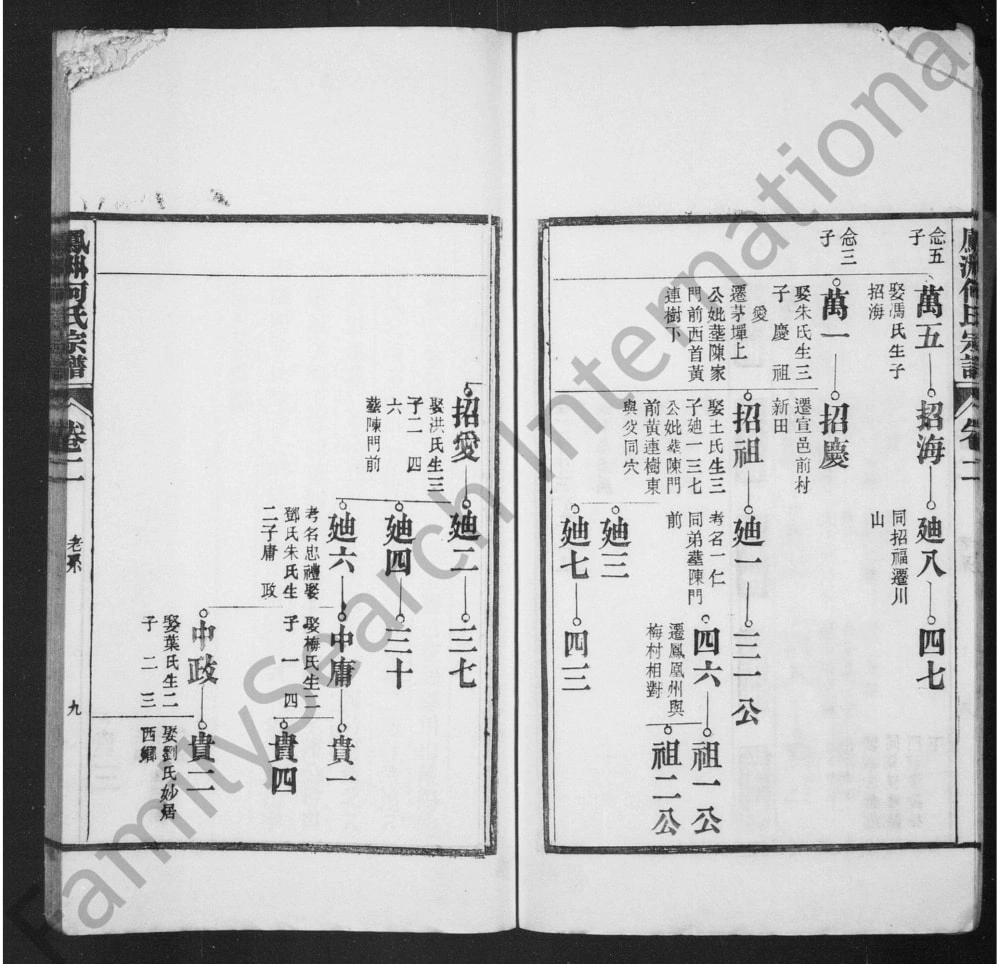 鳳洲何氏宗譜
卷二
念五
子
萬五
娶馮氏生子
招海
招海
廸八
同招福遷川
山
四七
念三
子
萬一
娶朱氏生三
子慶祖
愛
遷茅墠上
公妣塟陳家
門前西首黃
連樹下
招慶
遷宣邑前村
新田
招祖
娶王氏生三
子廸一三七
公妣塟陳門
前黃連樹東
與父同穴
廸一
考名一仁
同弟塟陳門
前
三一公
四六
遷鳳凰州與
梅村相對
祖一公
祖二公
廸三
廸七
四三
招愛
娶洪氏生三
子二四
六
塟陳門前
廸二
三七
廸四
三十
廸六
考名忠禮娶
鄧氏朱氏生
二子庸政
中庸
娶梅氏生二
子一四
貴一
貴四
中政
娶葉氏生二
子二三
貴二
娶劉氏妙居
西鄉
鳳洲何氏宗譜
卷二
老系
九
FamilySearch International